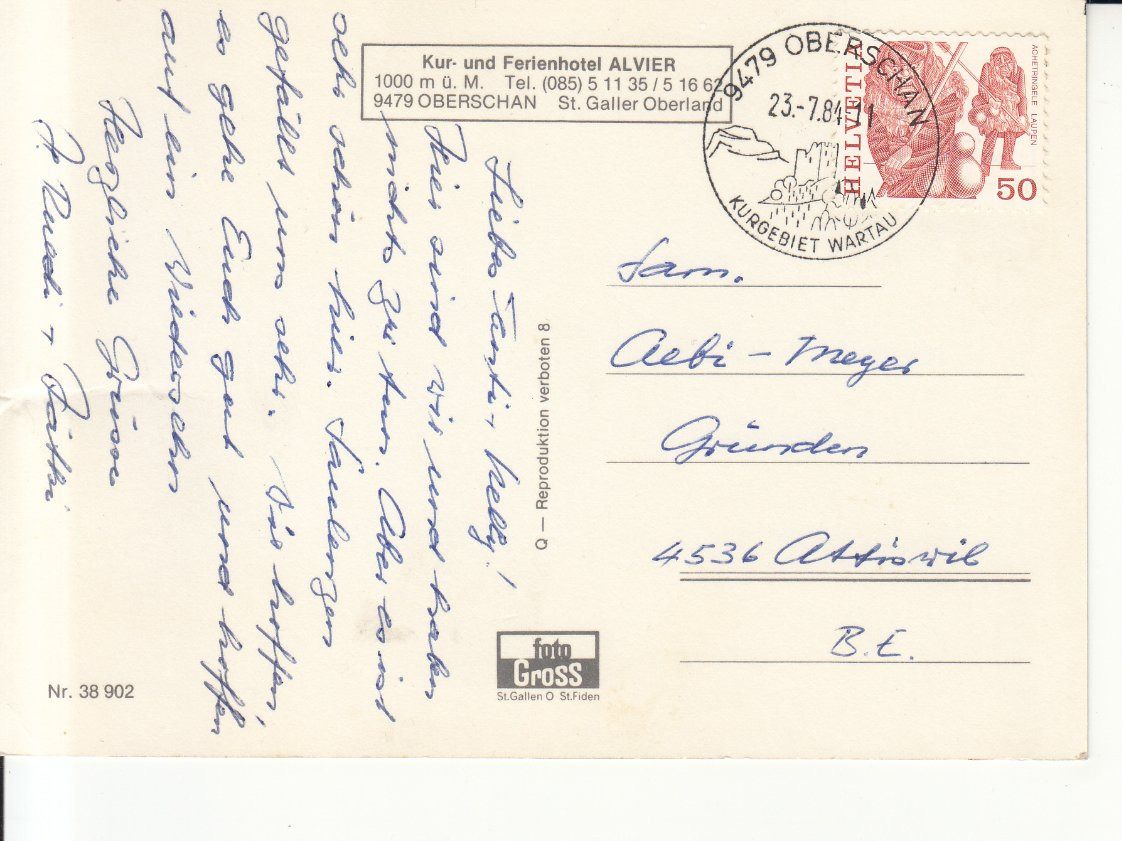 Kur- und Ferienhotel ALVIER
1000 m ü. M. Tel. (085) 5 11 35 / 5 16 62
9479 OBERSCHAN St. Galler Oberland
9479 OBERSCHAN
23.-7.84-11
KURGEBIET WARTAU
HELVETIA
ACHETRINGELE LAUPEN
50
Liebe Tanti + Nelly!
Hier sind wir und haben
nichts zu tun. Aber es ist
sehr schön hier.
gefällt uns sehr. Wir hoffen,
es gehe Euch gut und hoffen
auf ein Wiedersehen
Herzliche Grüsse
Ruedi + Käthi
Fam.
Aebi - Meyer
Gründen
4536 Attiswil
B.E.
Q — Reproduktion verboten 8
foto
Gross
St.Gallen O St.Fiden
Nr. 38 902